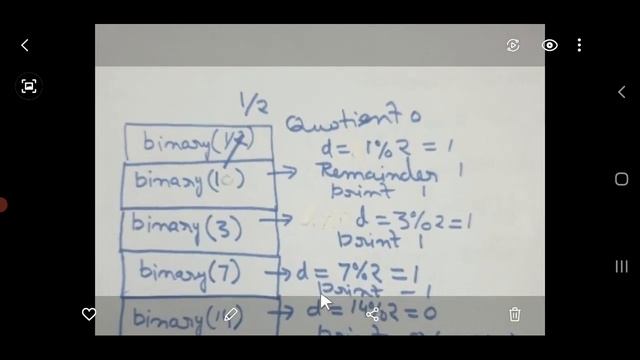 1/2
Quotient 0
binary(1/2)
d = 1%2 = 1
binary(1 ) → Remainder 1
print 1
binary(3) → d = 3%2 = 1
print 1
binary(7) → d = 7%2 = 1
print - 1
binary(14) → d = 14%2 = 0